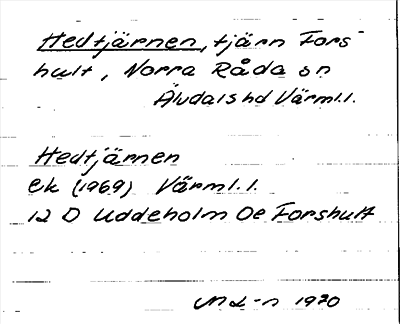 Hedtjärnen, tjärn Fors-
hult, Norra Råda sn
Älvdals hd Värml. l.
Hedtjärnen
ek (1969) Värml. l.
12 D Uddeholm Oe Forshult
1970